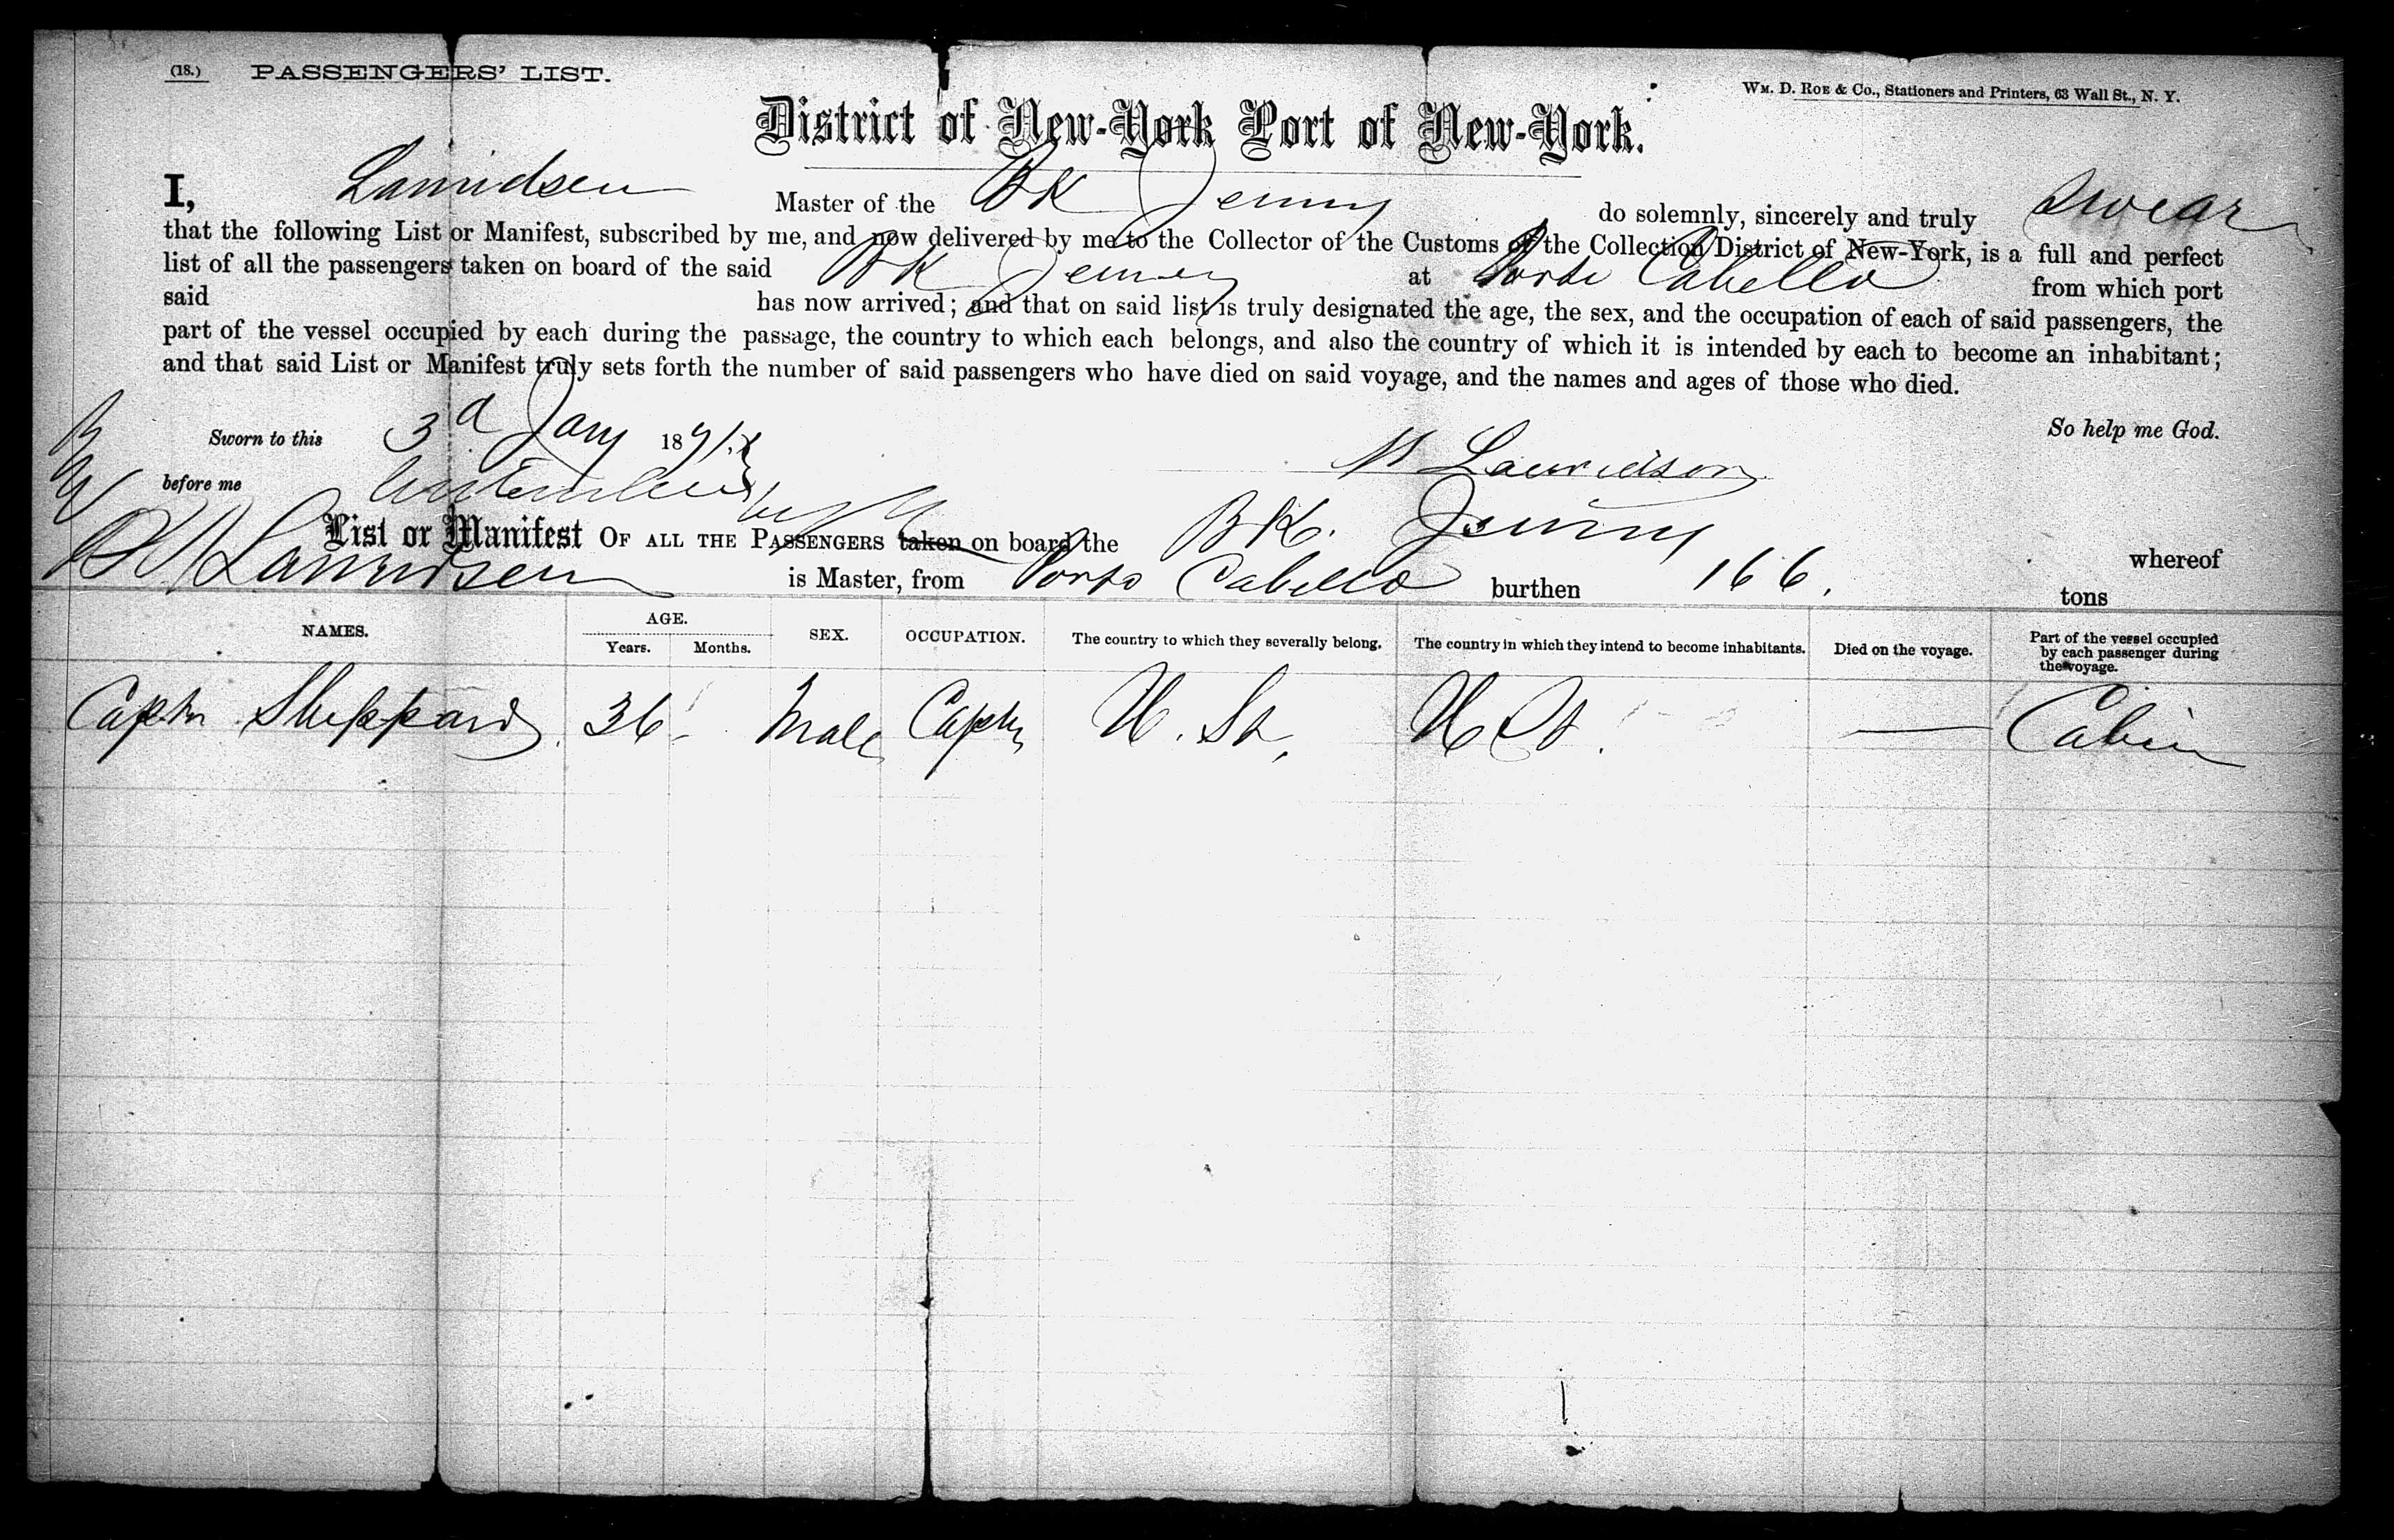 (18.) PASSENGERS' LIST.
Wm. D. Roe & Co., Stationers and Printers, 63 Wall St., N. Y.
District of New-York Port of New-York.
I, Lauridsen Master of the Bk Jenny do solemnly, sincerely and truly swear
that the following List or Manifest, subscribed by me, and now delivered by me to the Collector of the Customs of the Collection District of New-York, is a full and perfect
list of all the passengers taken on board of the said Bk Jenny at Porto Cabello from which port
said has now arrived; and that on said list is truly designated the age, the sex, and the occupation of each of said passengers, the
part of the vessel occupied by each during the passage, the country to which each belongs, and also the country of which it is intended by each to become an inhabitant;
and that said List or Manifest truly sets forth the number of said passengers who have died on said voyage, and the names and ages of those who died.
So help me God.
Sworn to this 3d Jany 187
before me
Lauridsen
List or Manifest OF ALL THE PASSENGERS taken on board the Bk. Jenny whereof
Lauridsen is Master, from Porto Cabello burthen 166. tons
NAMES. AGE. Years. Months. SEX. OCCUPATION. The country to which they severally belong. The country in which they intend to become inhabitants. Died on the voyage. Part of the vessel occupied by each passenger during the voyage.
Captn Sheppard 36 Male Captn U. St. U St. — Cabin